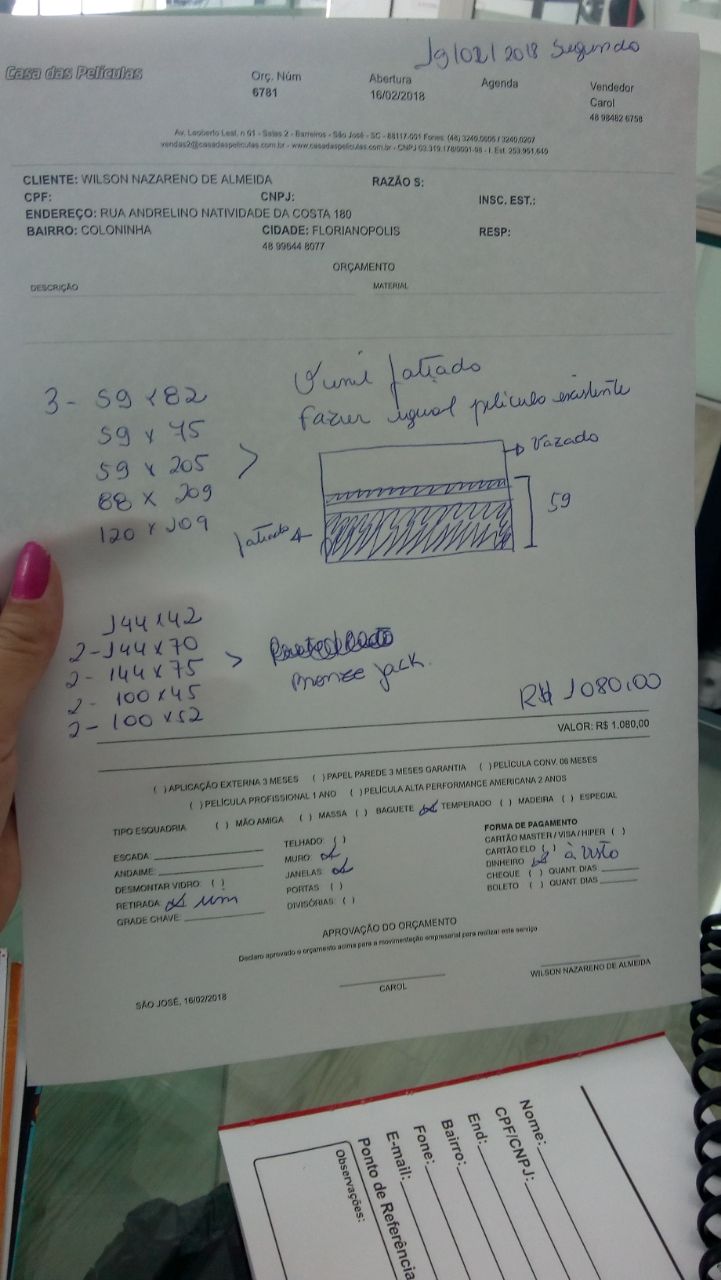 19/02/2018 Segundo
Casa das Películas
Orç. Núm
6781
Abertura
16/02/2018
Agenda
Vendedor
Carol
48 98482 6758
Av. Leoberto Leal, n 91 - Salas 2 - Barreiros - São José - SC - 88117-001 Fones: (48) 3240.0606 / 3240.0207
vendas2@casadaspeliculas.com.br - www.casadaspeliculas.com.br - CNPJ 03.319.178/0001-98 - I. Est. 253.951.649
CLIENTE: WILSON NAZARENO DE ALMEIDA RAZÃO S:
CPF: CNPJ: INSC. EST.:
ENDEREÇO: RUA ANDRELINO NATIVIDADE DA COSTA 180
BAIRRO: COLONINHA CIDADE: FLORIANOPOLIS RESP:
48 99644 8077
ORÇAMENTO
DESCRIÇÃO MATERIAL
3 - 59 x 82
59 x 75
59 x 205
88 x 209
120 x 109
Vinil jatiado
fazer igual película existente
Vazado
59
jatiado
144x42
2 - 144 x 70
2 - 144 x 75
2 - 100 x 45
2 - 100 x 52
Bronze jack.
R$ 1080,00
VALOR: R$ 1.080,00
( ) APLICAÇÃO EXTERNA 3 MESES ( ) PAPEL PAREDE 3 MESES GARANTIA ( ) PELÍCULA CONV. 06 MESES
( ) PELÍCULA PROFISSIONAL 1 ANO ( ) PELÍCULA ALTA PERFORMANCE AMERICANA 2 ANOS
TIPO ESQUADRIA ( ) MÃO AMIGA ( ) MASSA ( ) BAGUETE (x) TEMPERADO ( ) MADEIRA ( ) ESPECIAL
ESCADA:
ANDAIME:
DESMONTAR VIDRO: ( )
RETIRADA: x um
GRADE CHAVE:
TELHADO: ( )
MURO x
JANELAS: x
PORTAS ( )
DIVISÓRIAS: ( )
FORMA DE PAGAMENTO
CARTÃO MASTER / VISA / HIPER ( )
CARTÃO ELO ( )
DINHEIRO x à visto
CHEQUE ( ) QUANT. DIAS:
BOLETO ( ) QUANT. DIAS
APROVAÇÃO DO ORÇAMENTO
Declaro aprovado o orçamento acima para a movimentação empresarial para realizar este serviço
SÃO JOSÉ, 16/02/2018
CAROL
WILSON NAZARENO DE ALMEIDA
Nome:
CPF/CNPJ:
End:
Bairro:
Fone:
E-mail:
Ponto de Referência
Observações: